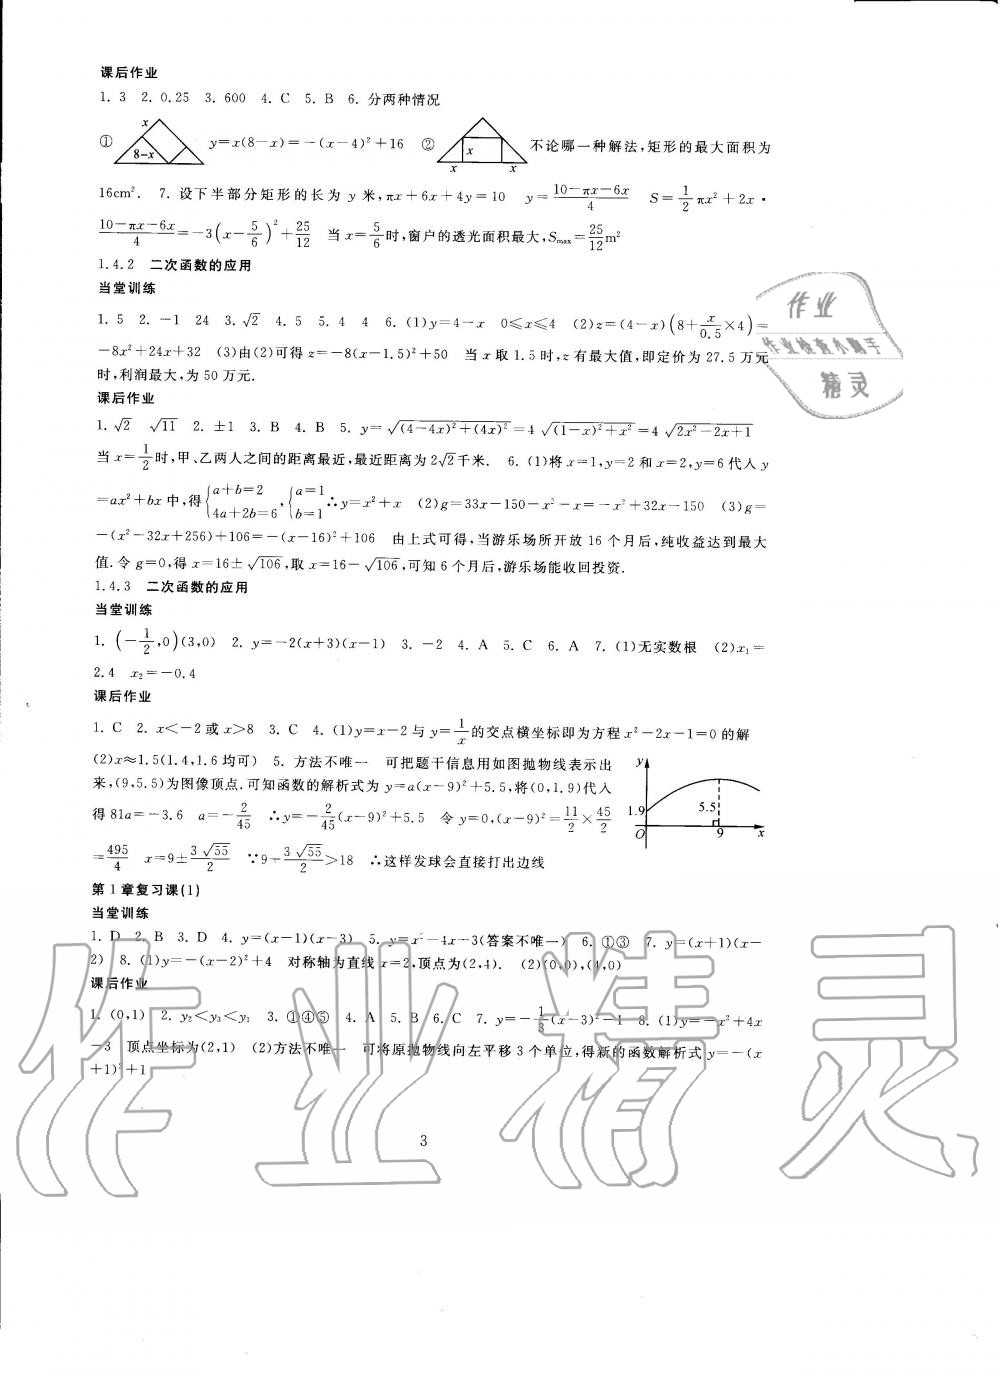 课后作业
1. 3  2. 0.25  3. 600  4. C  5. B  6. 分两种情况
① x 8-x y=x(8-x)=-(x-4)²+16 ② x x x 不论哪一种解法,矩形的最大面积为
16cm². 7. 设下半部分矩形的长为 y 米,πx+6x+4y=10 y=(10-πx-6x)/4 S=1/2 πx²+2x·
(10-πx-6x)/4=-3(x-5/6)²+25/12 当 x=5/6时,窗户的透光面积最大,Smax=25/12 m²
1.4.2 二次函数的应用
当堂训练
1. 5 2. -1 24 3. √2 4. 5 5. 4 4 6. (1)y=4-x 0≤x≤4 (2)z=(4-x)(8+x/0.5×4)=
-8x²+24x+32 (3)由(2)可得 z=-8(x-1.5)²+50 当 x 取 1.5 时,z 有最大值,即定价为 27.5 万元
时,利润最大,为 50 万元.
课后作业
1. √2 √11 2. ±1 3. B 4. B 5. y=√((4-4x)²+(4x)²)=4√((1-x)²+x²)=4√(2x²-2x+1)
当 x=1/2时,甲、乙两人之间的距离最近,最近距离为 2√2千米. 6. (1)将 x=1,y=2 和 x=2,y=6 代入 y
=ax²+bx 中,得{a+b=2 4a+2b=6,{a=1 b=1∴y=x²+x (2)g=33x-150-x²-x=-x²+32x-150 (3)g=
-(x²-32x+256)+106=-(x-16)²+106 由上式可得,当游乐场所开放 16 个月后,纯收益达到最大
值.令 g=0,得 x=16±√106,取 x=16-√106,可知 6 个月后,游乐场能收回投资.
1.4.3 二次函数的应用
当堂训练
1. (-1/2,0)(3,0) 2. y=-2(x+3)(x-1) 3. -2 4. A 5. C 6. A 7. (1)无实数根 (2)x₁=
2.4 x₂=-0.4
课后作业
1. C 2. x<-2或 x>8 3. C 4. (1)y=x-2 与 y=1/x的交点横坐标即为方程 x²-2x-1=0 的解
(2)x≈1.5(1.4,1.6均可) 5. 方法不唯一 可把题干信息用如图抛物线表示出
来,(9,5.5)为图像顶点.可知函数的解析式为 y=a(x-9)²+5.5,将(0,1.9)代入
得 81a=-3.6 a=-2/45 ∴y=-2/45(x-9)²+5.5 令 y=0,(x-9)²=11/2×45/2
=495/4 x=9±3√55/2 ∵9+3√55/2>18 ∴这样发球会直接打出边线
y 1.9 5.5 O 9 x
第 1 章复习课(1)
当堂训练
1. D 2. B 3. D 4. y=(x-1)(x-3) 5. y=x²-4x-3(答案不唯一) 6. ①③ 7. y=(x+1)(x-
2) 8. (1)y=-(x-2)²+4 对称轴为直线 x=2,顶点为(2,4). (2)(0,0),(4,0)
课后作业
1. (0,1) 2. y₂<y₃<y₁ 3. ①④⑤ 4. A 5. B 6. C 7. y=-1/3(x-3)²-1 8. (1)y=-x²+4x
-3 顶点坐标为(2,1) (2)方法不唯一 可将原抛物线向左平移 3 个单位,得新的函数解析式 y=-(x
+1)²+1
3
作业
作业检查小助手
精灵
作业精灵